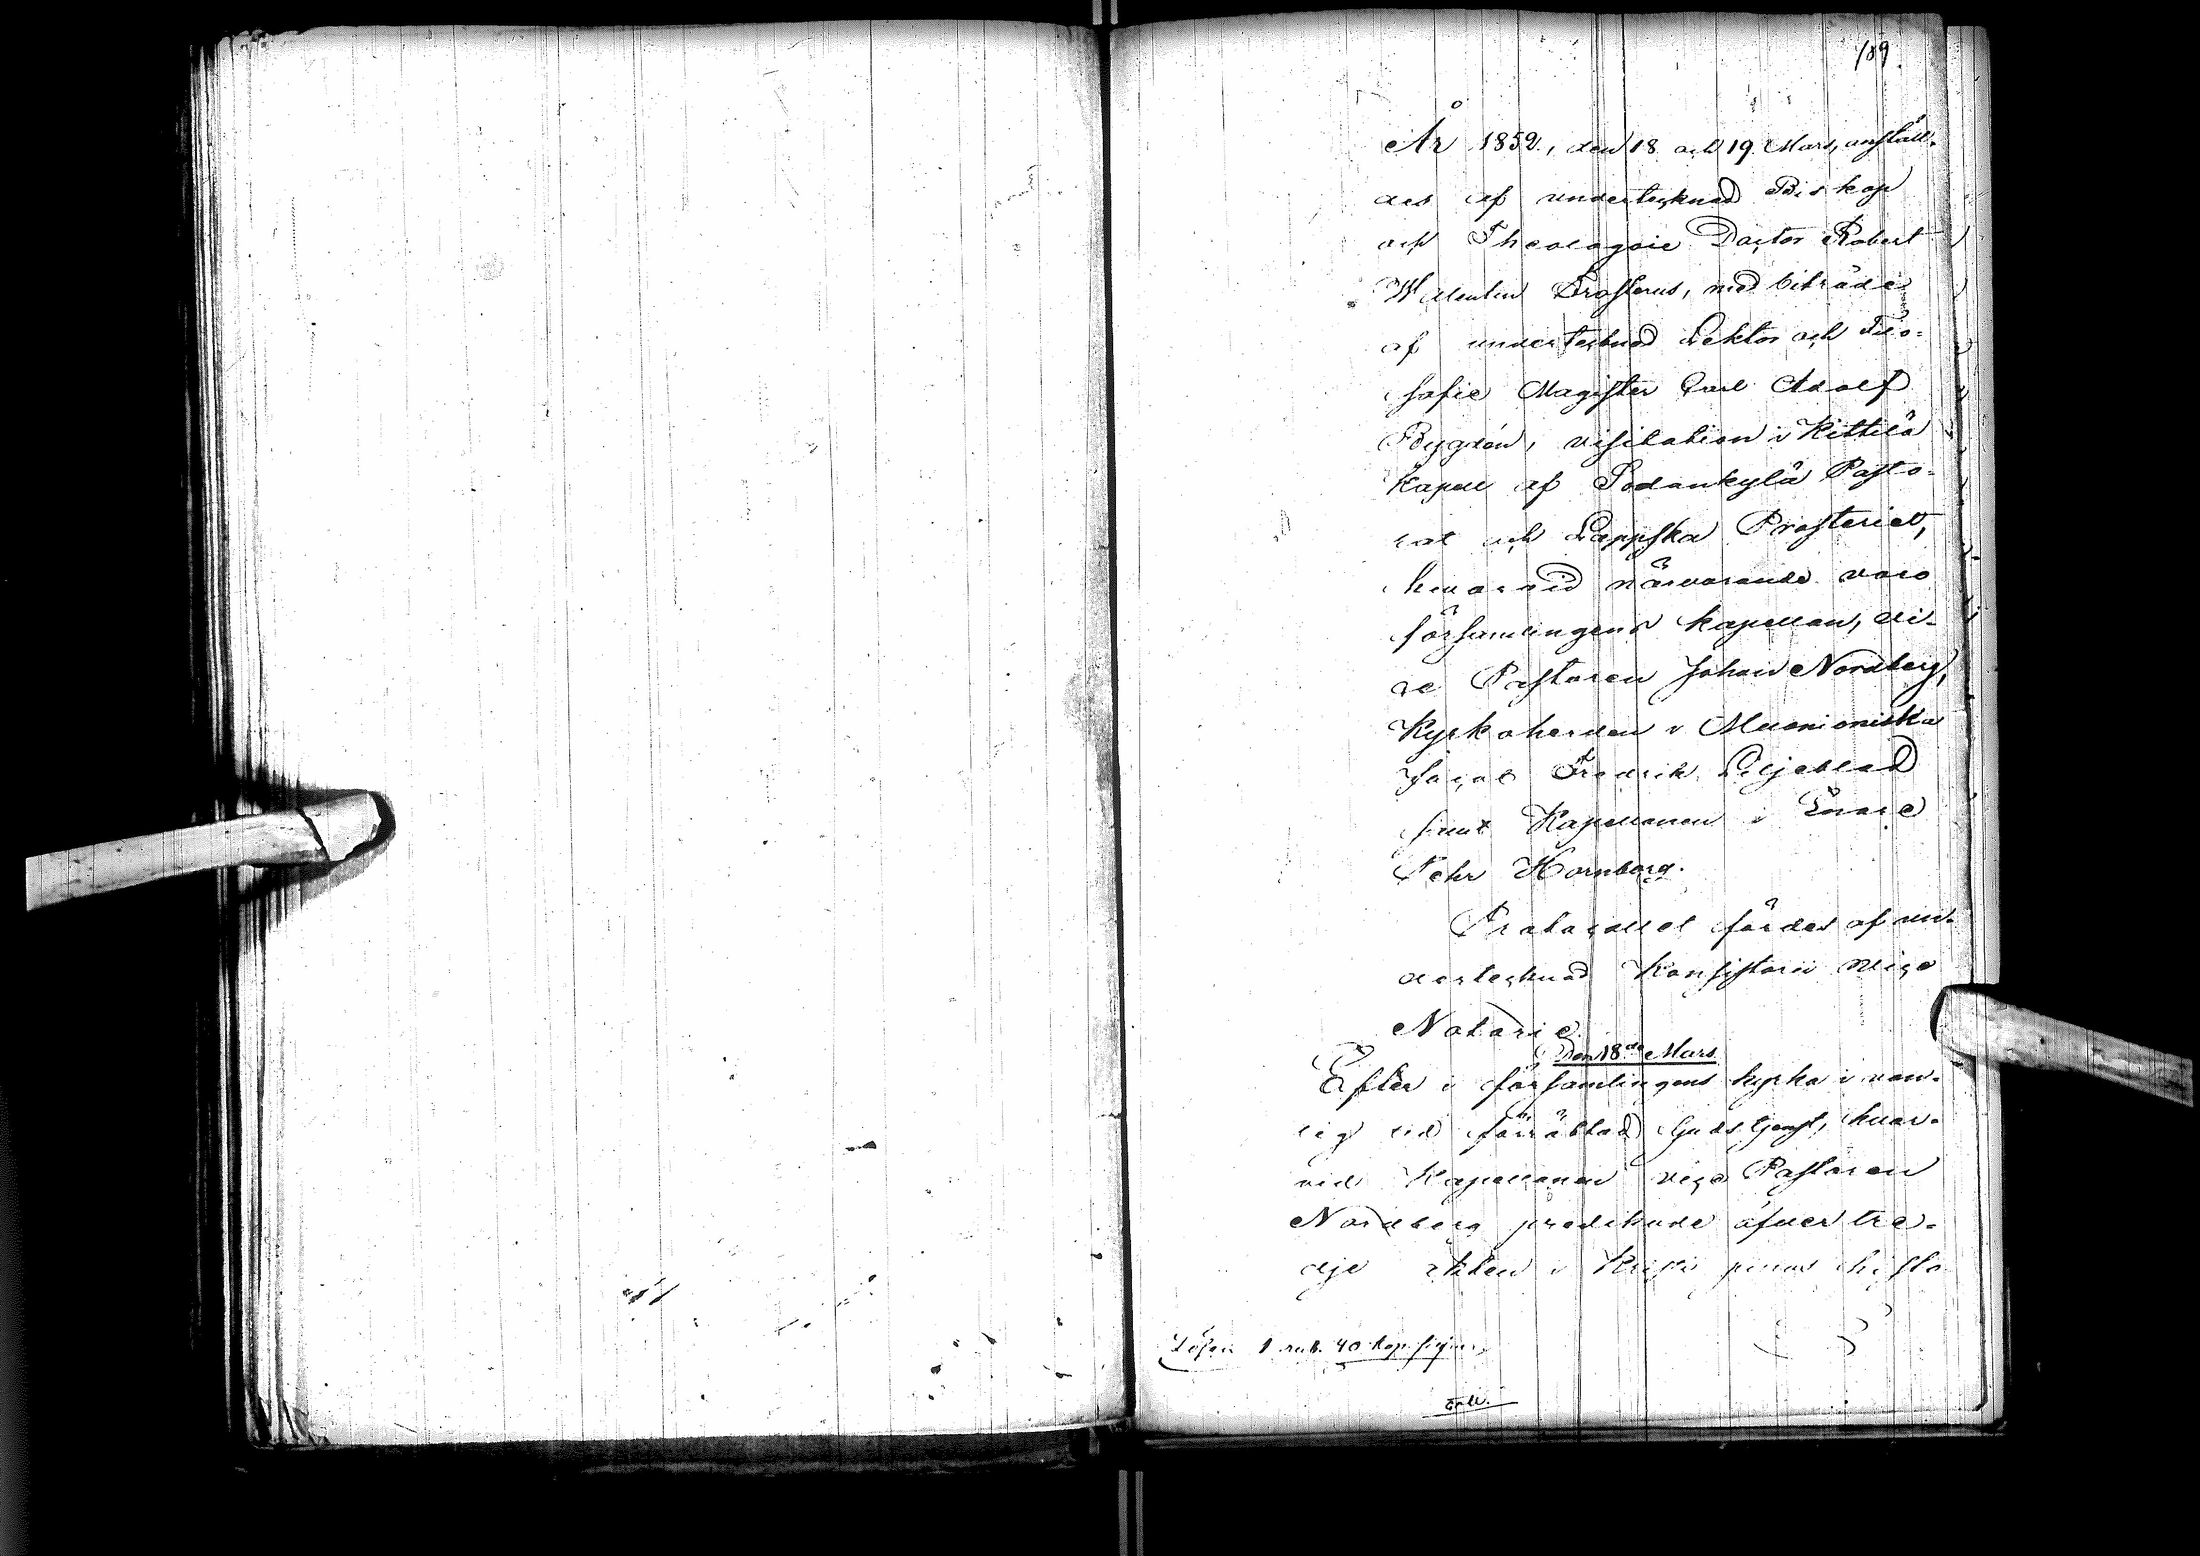 189.
År 1852, den 18 och 19 Mars, anställ-
des af undertecknad Biskop
och Theologie Doctor Robert
Walentin Frosterus, med biträde
af undertecknad Lektor och Filo-
sofie Magister Carl Adolf
Bygdén, visitation i Kittilä
Kapell af Sodankylä Pasto-
rat och Lappska Prosteriet,
hvarvid närvarande voro
församlingens kapellan, vi-
ce Pastoren Johan Nordberg,
Kyrkoherden i Muonioniska
Jacob Fredrik Liljeblad
samt Kapellanen i Enare
Pehr Hornborg.
Protocollet fördes af un-
dertecknad Konsistorii vice
Notarie.
Den 18de Mars.
Efter i församlingens kyrka i van-
lig tid förrättad Gudstjenst, hvar-
vid Kapellanen vice Pastoren
Nordberg predikade öfver tre-
dje akten i Kristi pinas histo
Lösen 1 rub. 40 kop. silfver